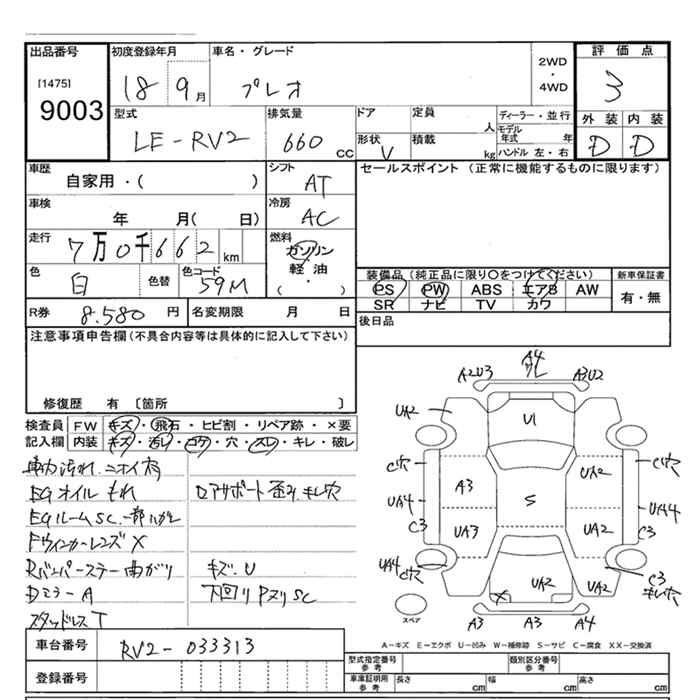 出品番号 初度登録年月 車名・グレード 2WD・4WD 評価点
[1475]
9003
18 9月 プレオ 3
型式 排気量 ドア 定員 人 ディーラー・並行 外装 内装
LE-RV2 660 CC 形状 V 積載 kg モデル年式 年 ハンドル 左・右 D D
車歴 シフト セールスポイント (正常に機能するものに限ります)
自家用・( ) AT
車検 冷房
年 月( 日) AC
走行 燃料
7万0千662km ガソリン
軽油
・
( )
色 白 色替 色コード 59M
装備品(純正品に限り○をつけてください) 新車保証書
PS PW ABS エアB AW 有・無
SR ナビ TV カワ
R券 8.580 円 名変期限 月 日
後日品
注意事項申告欄(不具合内容等は具体的に記入して下さい)
修復歴 有 〔箇所 〕
検査員記入欄 FW キズ・飛石・ヒビ割・リペア跡・×要
内装 キズ・汚レ・コゲ・穴・スレ・キレ・破レ
車内汚れ.ニオイ有
EGオイルもれ ロアサポート歪み.キレ穴
EGルームSC.一部ハガレ
Fウィンカーレンズ X
Rバンパーステー曲がり キズ.U
Dミラー A 下回りPヌリSC
スタッドレスT
A2U3 A4 ワレ A3U2
UA2 U1
C穴 A3 S UA2 C穴
UA4 UA4
C3 UA3 UA2 C3
UA4 C穴 X UA2 UA2 C3 キレ穴
スペア A3 A3 A4
A-キズ E-エクボ U-凹み W-補修跡 S-サビ C-腐食 XX-交換済
車台番号 RV2-033313
登録番号
型式指定番号 参考 類別区分番号 参考
車庫証明用 参考 長さ cm 幅 cm 高さ cm